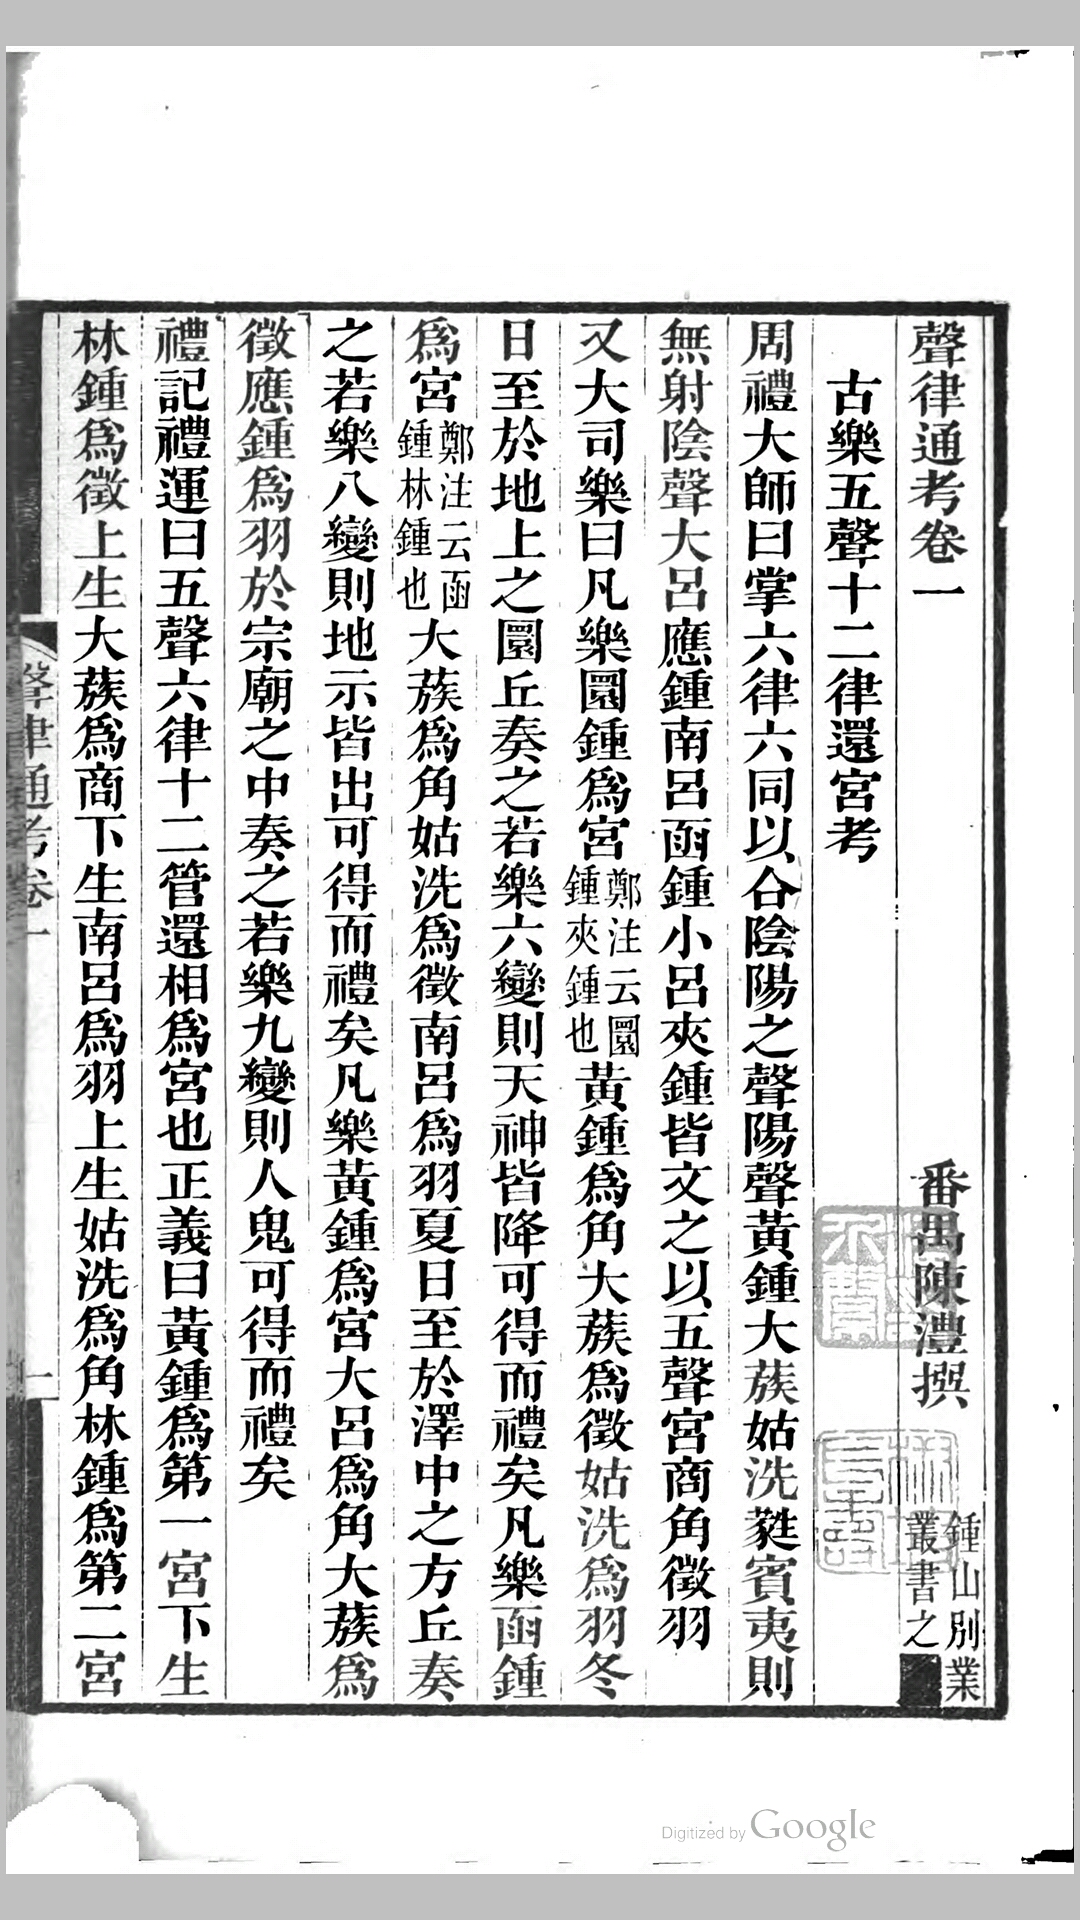 聲律通考卷一
番禺陳澧撰
鍾山別業
叢書之
古樂五聲十二律還宮考
周禮大師曰掌六律六同以合陰陽之聲陽聲黃鍾大蔟姑洗蕤賓夷則
無射陰聲大呂應鍾南呂函鍾小呂夾鍾皆文之以五聲宮商角徵羽
又大司樂曰凡樂圜鍾爲宮鄭注云圜鍾夾鍾也黃鍾爲角大蔟爲徵姑洗爲羽冬
日至於地上之圜丘奏之若樂六變則天神皆降可得而禮矣凡樂函鍾
爲宮鄭注云函鍾林鍾也大蔟爲角姑洗爲徵南呂爲羽夏日至於澤中之方丘奏
之若樂八變則地示皆出可得而禮矣凡樂黃鍾爲宮大呂爲角大蔟爲
徵應鍾爲羽於宗廟之中奏之若樂九變則人鬼可得而禮矣
禮記禮運曰五聲六律十二管還相爲宮也正義曰黃鍾爲第一宮下生
林鍾爲徵上生大蔟爲商下生南呂爲羽上生姑洗爲角林鍾爲第二宮
聲律通考卷一
一
Digitized by Google